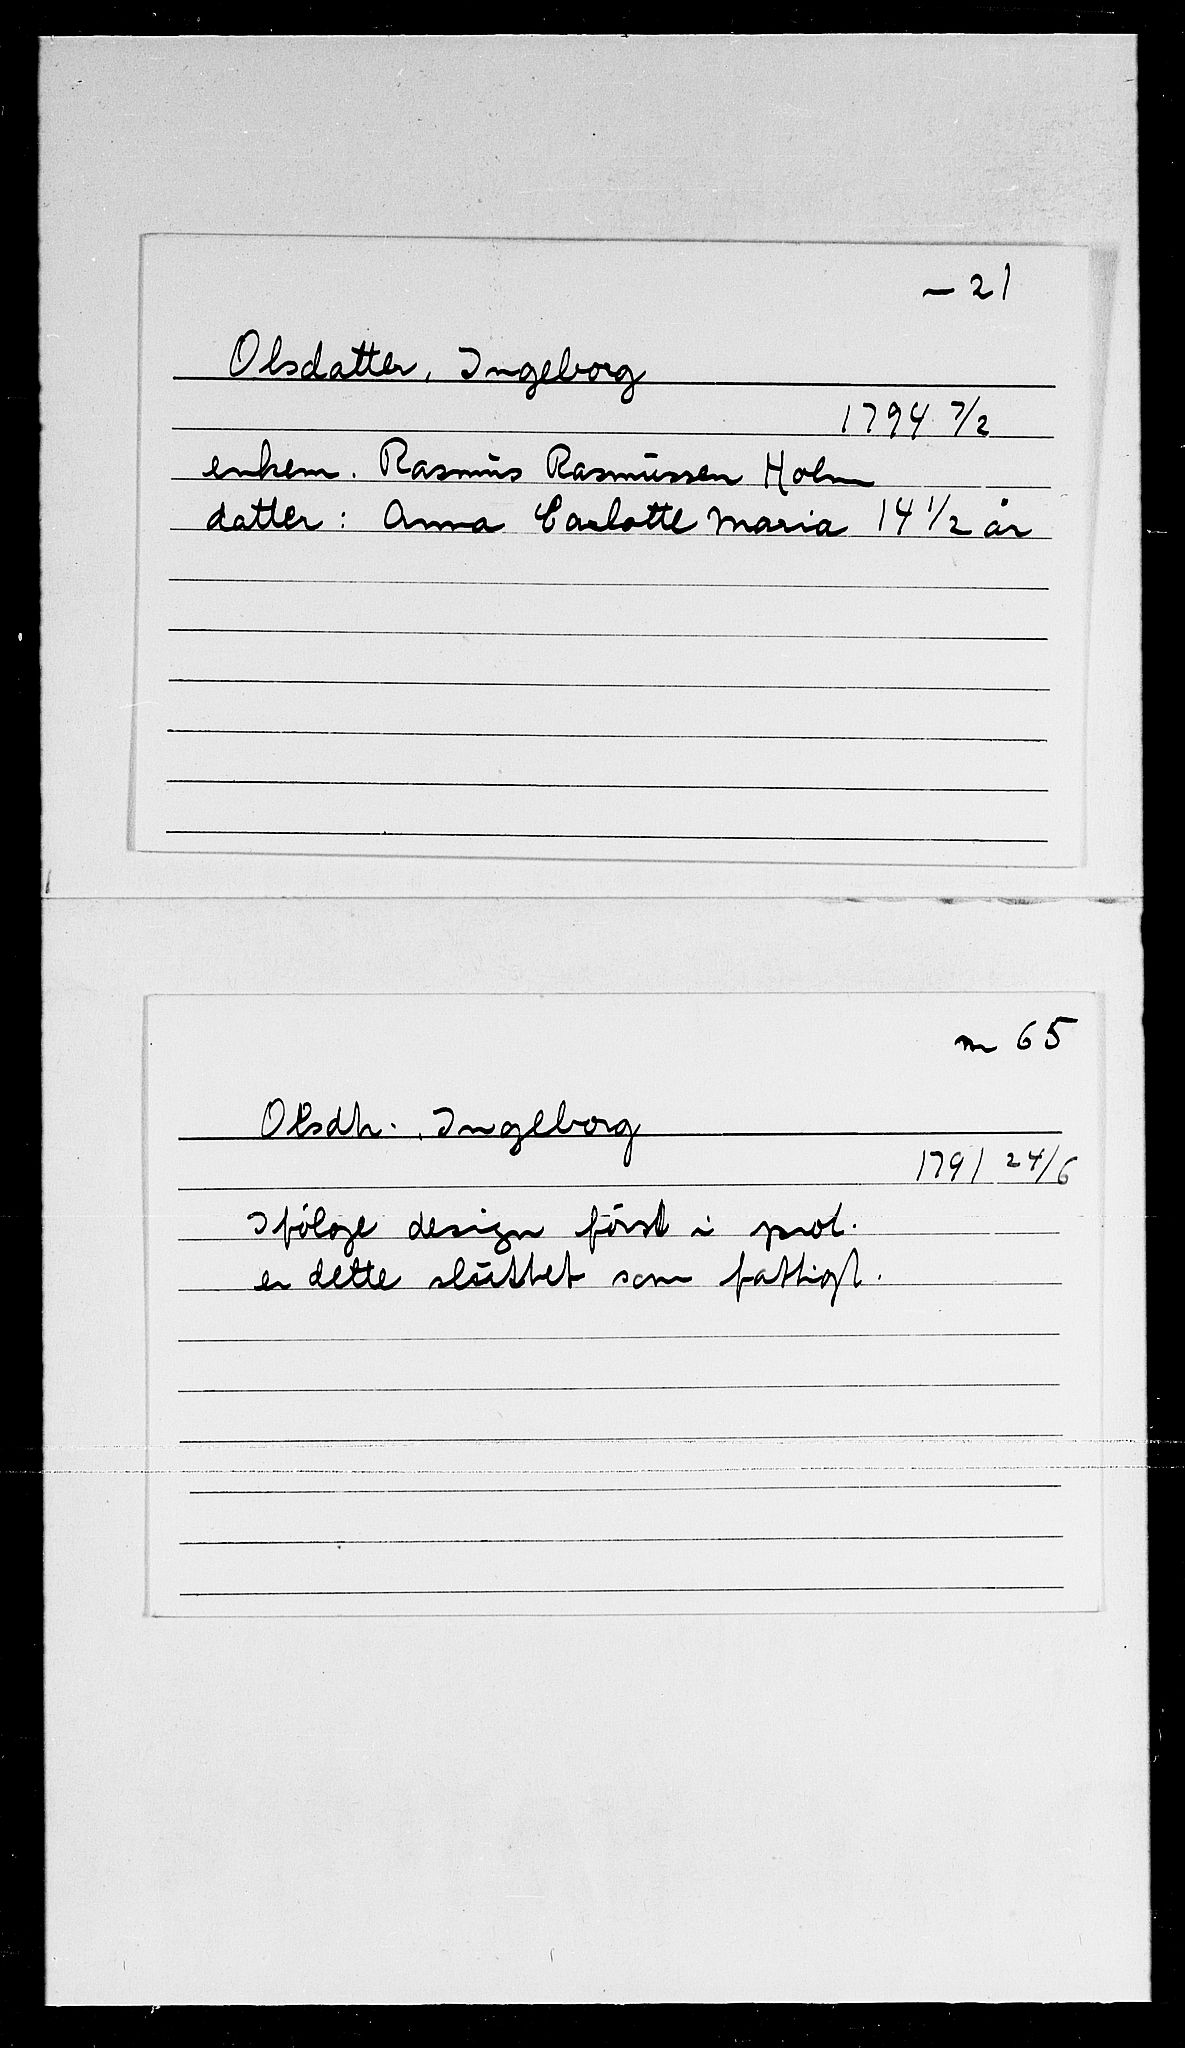 – 21
Olsdatter, Ingeborg
1794 7/2
enkem. Rasmus Rasmussen Holm
datter: Anna Carlotte Maria 14 1/2 år
m 65
Olsdtr. Ingeborg
1791 24/6
Ifølge design først i prot.
er dette sluttet som fattigt.